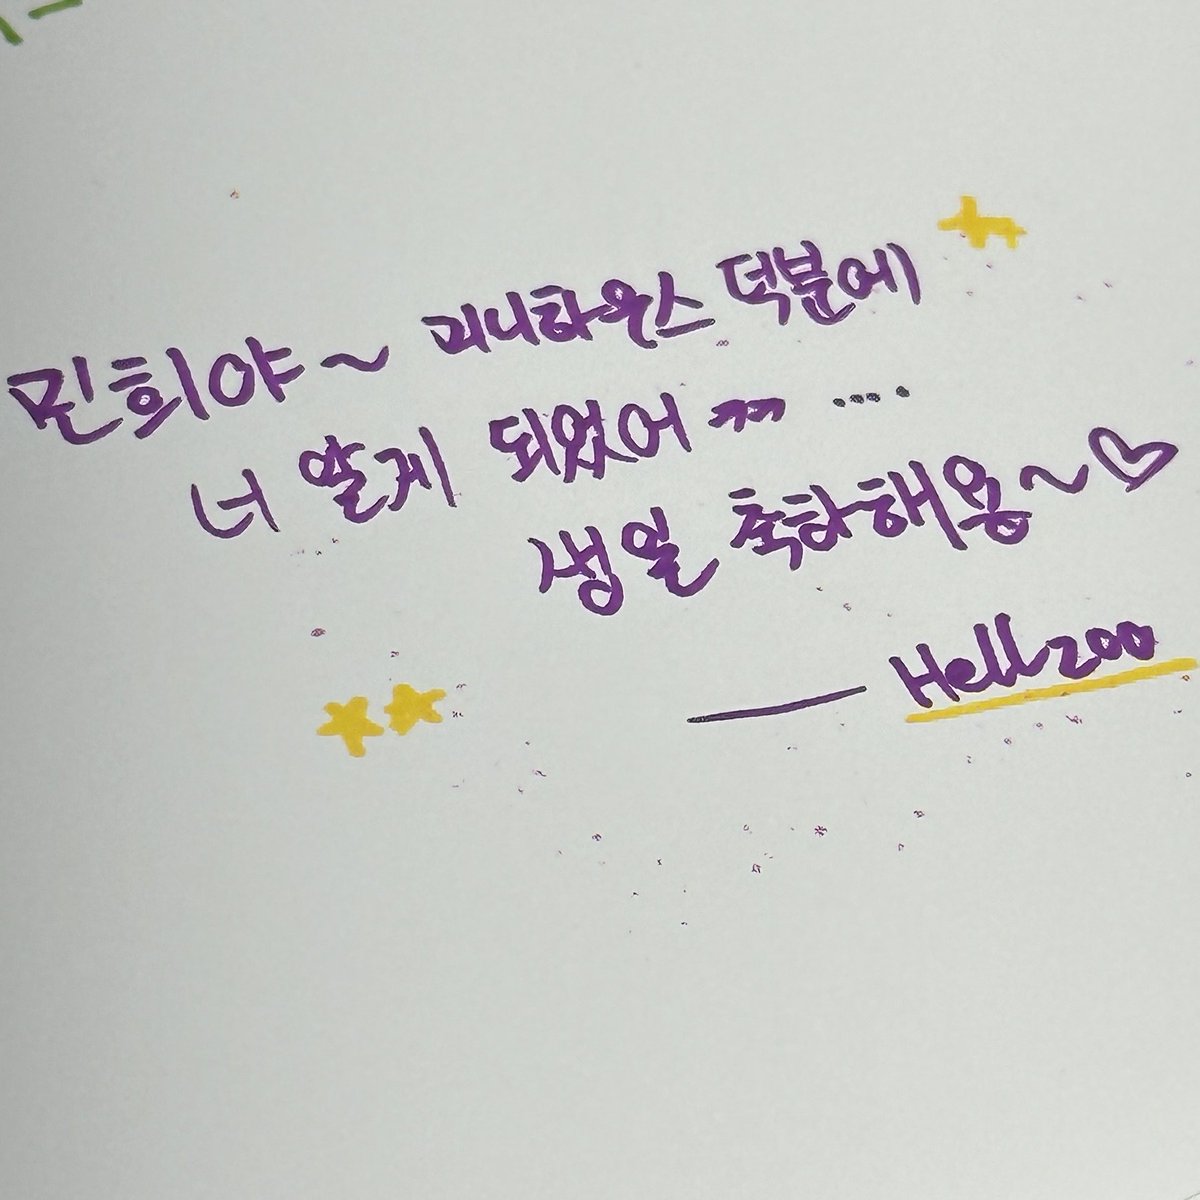 민희야~ 미니하우스 덕분에
너 알게 되었어 ㅋㅋ ....
생일 축하해용~♡
— Hellzoo